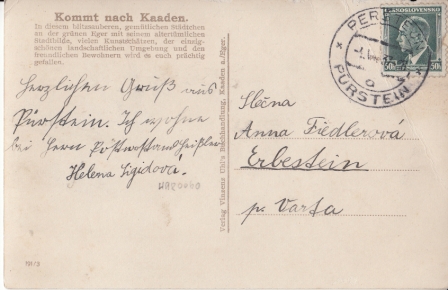 Kommt nach Kaaden.
In diesem blitzsauberen, gemütlichen Städtchen
an der grünen Eger mit seinem altertümlichen
Stadtbilde, vielen Kunstschätzen, der einzig-
schönen landschaftlichen Umgebung und den
freundlichen Bewohnern wird es euch prächtig
gefallen.
Herzlichen Gruß aus
Pürstein. Ich wohne
bei Herrn
Helena
Verlag Vinzenz Uhl's Buchhandlung, Kaaden a./Eger.
ČESKOSLOVENSKO
50h 50h
PÜRSTEIN
a
Slečna
Anna Fiedlerová
Erbestein
p. Varta